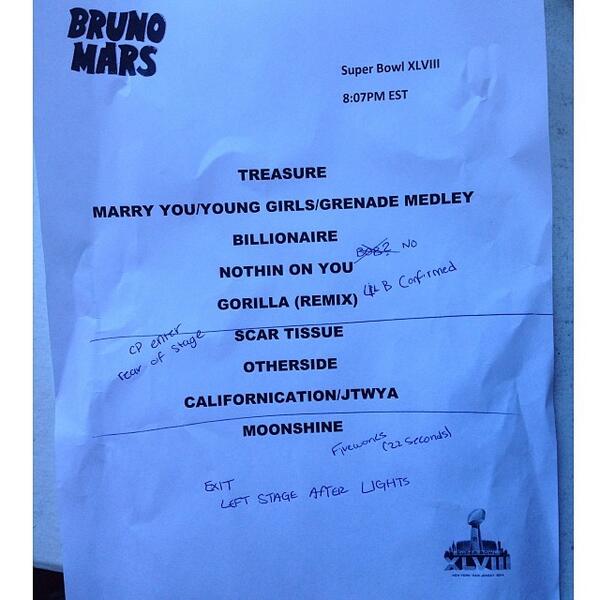 BRUNO
MARS
Super Bowl XLVIII
8:07PM EST
TREASURE
MARRY YOU/YOUNG GIRLS/GRENADE MEDLEY
BILLIONAIRE
BOB? NO
NOTHIN ON YOU
GORILLA (REMIX) B Confirmed
CP enter
rear of stage
SCAR TISSUE
OTHERSIDE
CALIFORNICATION/JTWYA
MOONSHINE
Fireworks (22 seconds)
EXIT
LEFT STAGE AFTER LIGHTS
SUPER BOWL
XLVIII
NEW YORK NEW JERSEY 2014